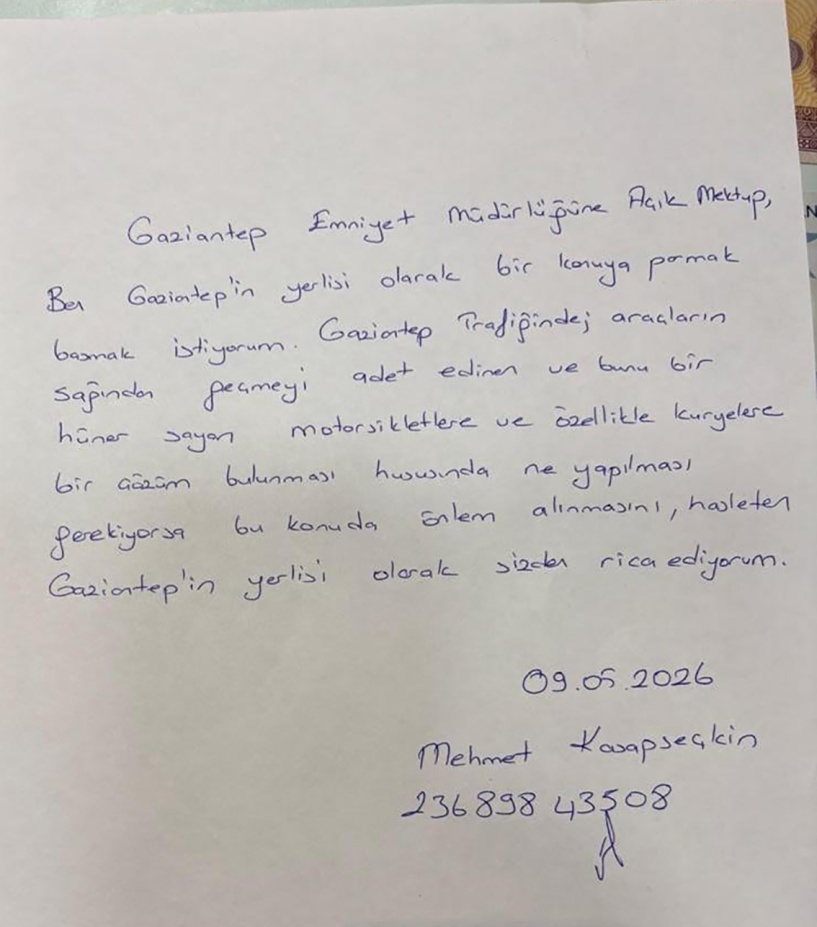 Gaziantep Emniyet Müdürlüğüne Açık Mektup,
Ben Gaziantep'in yerlisi olarak bir konuya parmak
basmak istiyorum. Gaziantep Trafiğinde; araçların
sağından geçmeyi adet edinen ve bunu bir
hüner sayan motorsikletlere ve özellikle kuryelere
bir çözüm bulunması hususında ne yapılması
gerekiyorsa bu konuda önlem alınmasını, hasleten
Gaziantep'in yerlisi olarak sizden rica ediyorum.
09.05.2026
Mehmet Kasapseçkin
236898 43508